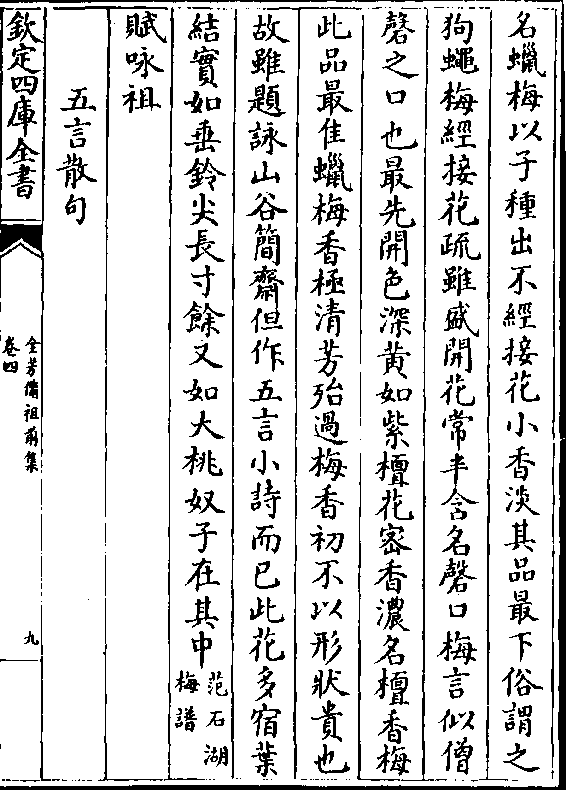 名蠟梅以子種出不經接花小香淡其品最下俗謂之
狗蠅梅經接花疏雖盛開花常半含名磬口梅言似僧
磬之口也最先開色深黄如紫檀花密香濃名檀香梅
此品最佳蠟梅香極清芳殆過梅香初不以形狀貴也
故雖題詠山谷簡齋但作五言小詩而已此花多宿葉
結實如垂鈴尖長寸餘又如大桃奴子在其中范石湖梅譜
賦咏祖
五言散句
欽定四庫全書
全芳備祖前集
卷四
九